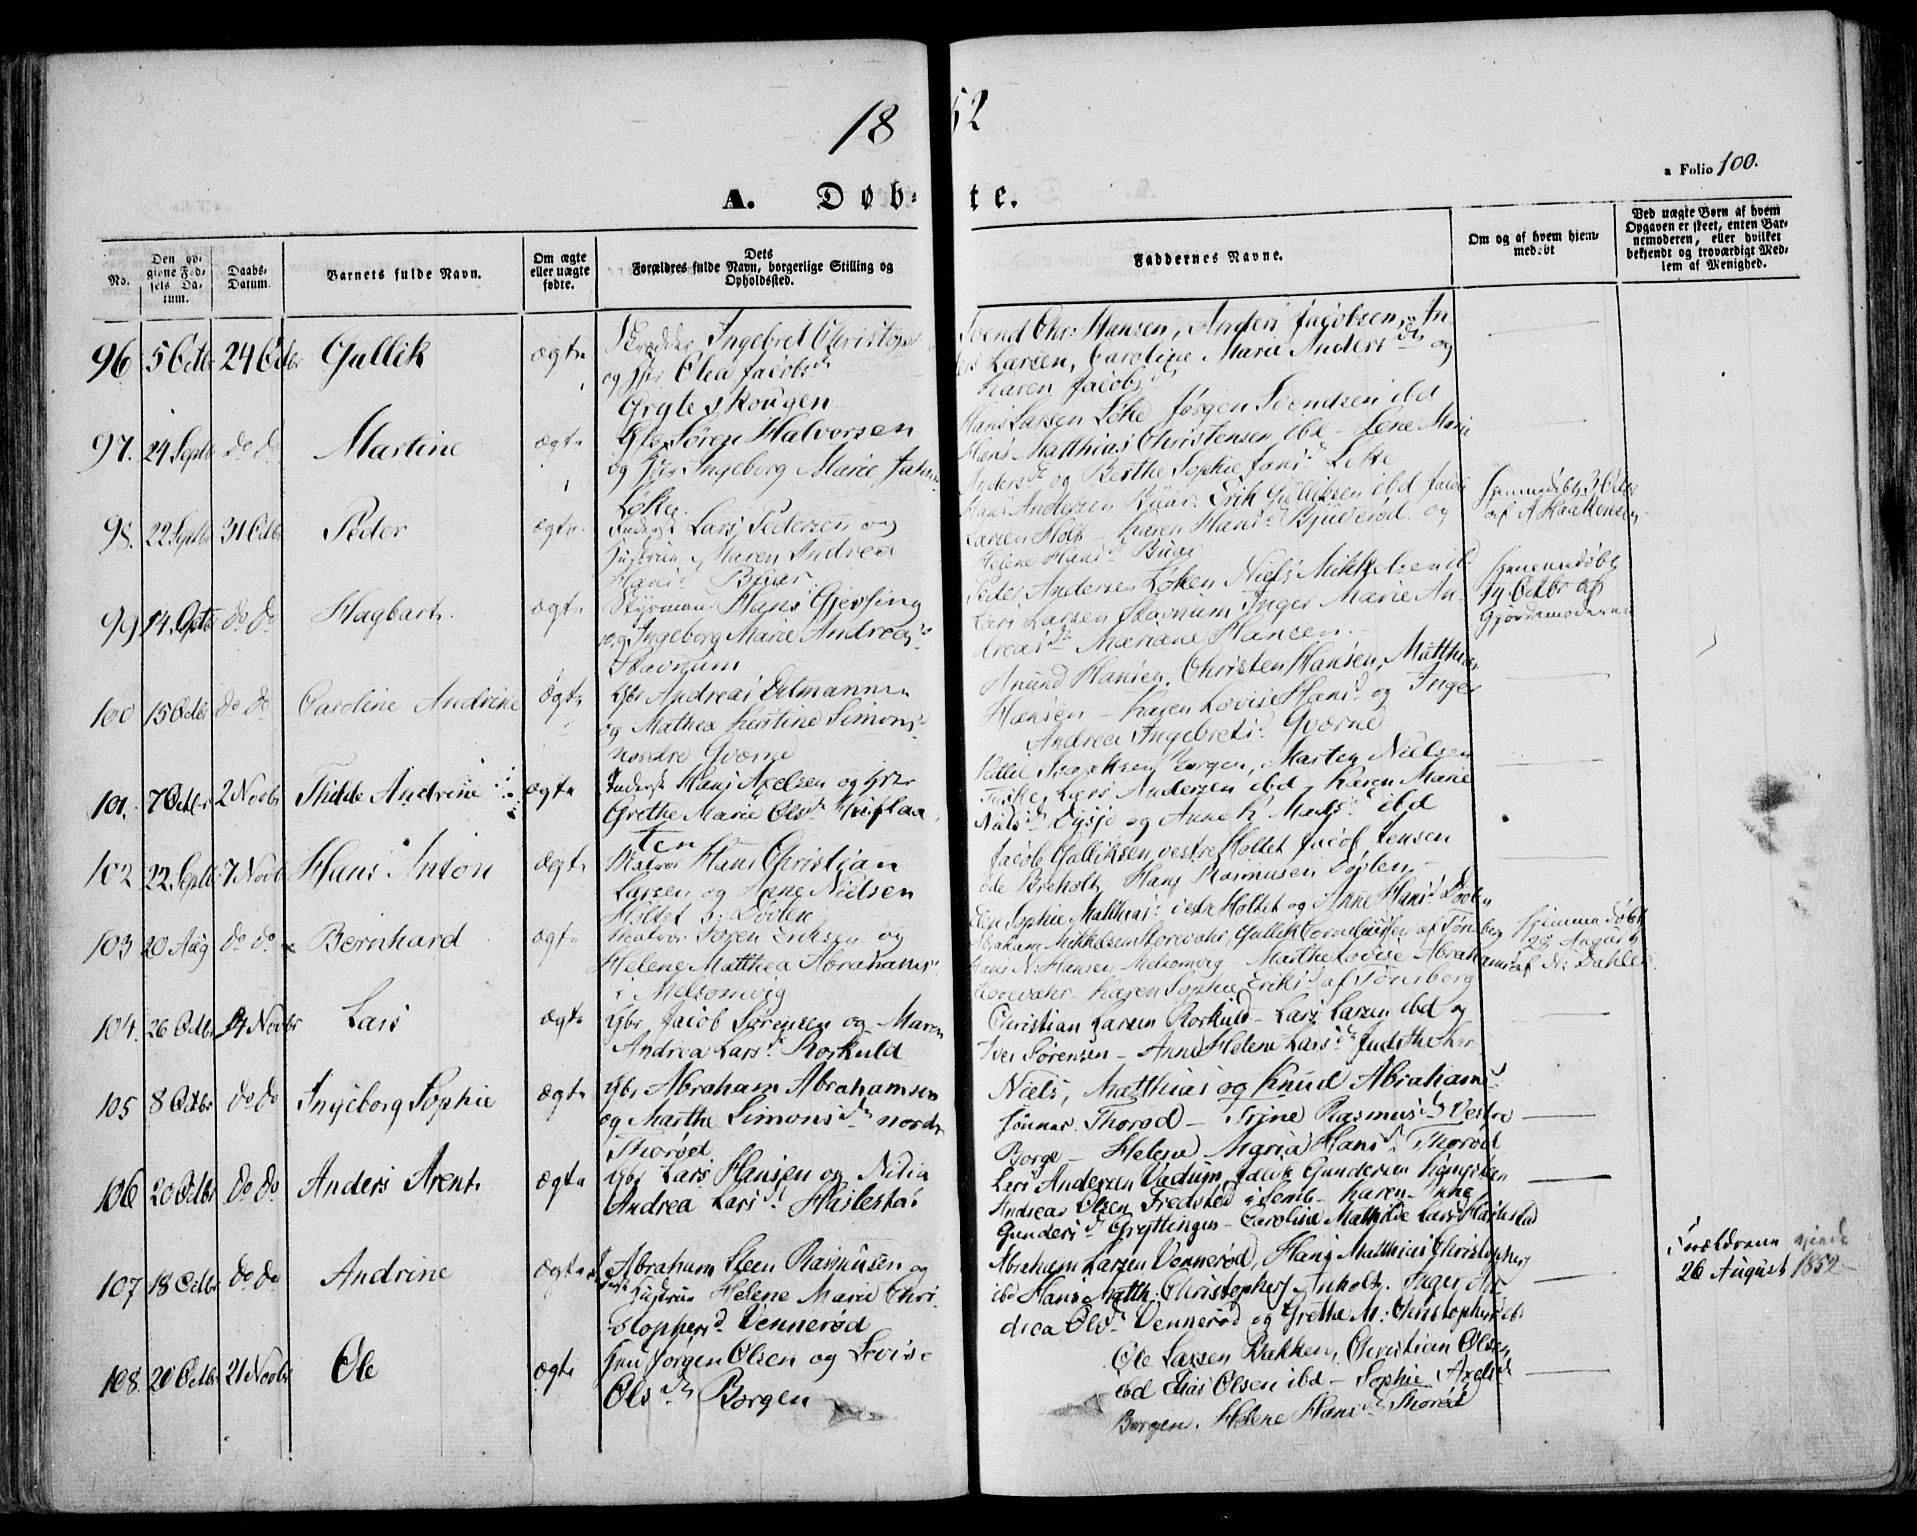 18 52
a Folio 100.
A. Døb- te.
No.
Den opgivne Fødsels Datum.
Daabs-Datum.
Barnets fulde Navn.
Om ægte eller uægte fødte.
Dets Forældres fulde Navn, borgerlige Stilling og Opholdssted.
Faddernes Navne.
Om og af hvem hjemmedøbt
Ved uægte Børn af hvem Opgaven er skeet, enten Barnemoderen, eller hvilket bekjendt og troværdigt Medlem af Menighed.
96 5 Octbr 24 Octbr Gullik ægte Skrædder Ingebret Christop
og Olea Jacobs d
Gryteskougen
Svend Chr: Hansen, Anders Jacobsen, An
ders Larsen, Caroline Marie Anders d og
Karen Jacobs d
97. 24 Septbr do do Martine ægte Gbr Søren Halvorsen
og Ingeborg Marie
Løke.
Hans Larsen Løke Jørgen Svendsen ibd
Hans Matthias Christensen ibd - Lene Marie
Anders d og Berthe Sophie Løke
98. 22 Septbr 31 Octbr Peder ægte Inderst Lars Pedersen og
Hustrue Maren Andrea
Hans d Buar
Hans Andersen Buar. Erik Gulliksen ibd Jacob
Larsen Holt - Karen Hans d Bjuerød og
Helene Hans d Buar
Hjemmedøbt 3 Octbr
af A Haakensen
99 14 Octbr do do Hagbart ægte Styrmand Hans Gjersing
og Ingeborg Marie Andreas d
Stavnum
Peder Andersen Løken Niels Mikkelsen ibd
Lars Larsen Stavnum Inger Marie An
dreas d Mariane Hansen
Hjemmedøbt
14 Octbr af
Gjordemoderen
100 15 Octbr do do Caroline Andrine ægte Gbr Andreas
og Mathea Kirstine Simons d
nordre Gværne
Anund Hansen, Christen Hansen, Matthias
Hansen - Karen Lovise Hans d og Inger
Andrea Ingebrets d Gværne
101. 7 Octbr 2 Novbr Thilde Andrine ægte Inderst Hans Axelsen og
Grethe Marie Ols d Hvitlaa
ten
Isaksen Borgen, Morten Nielsen
Lars Andersen ibd - Karen Marie
Niels d og Anne K Mads d ibd
102 22 Septbr 7 Novbr Hans Anton ægte Matros Hans Christian
Larsen og Anne Nielsen
Holtet
Jacob Gulliksen vestre Holtet Jacob Jensen
Hans Rasmusen
Sophie Matthias d vestre Holtet og Anne Hans d
103 20 Aug do do Bernhard ægte Matros Søren Eriksen og
Helene Matthea Abrahams d
i Melsomvig
Abraham Mikkelsen Storevahr, Gullik Corneliussen af Tønsberg
Hans N. Hansen Melsomvig - Marthe Lovise Abrahams d
Storevahr - Karen Sophie Eriks d af Tønsberg
Hjemmedøbt
28 August
af N: Dahler
104. 26 Octbr 14 Novbr Lars ægte Gbr Jacob Sørensen og Maren
Andrea Lars d Rorkuld
Christian Larsen Rorkuld - Lars Larsen ibd og
Iver Sørensen - Anne Helene Lars d Judithe
105 8 Octbr do do Ingeborg Sophie ægte Gbr Abraham Abrahamsen
og Marthe Simons d nordr
Thorød
Niels, Matthias og Knud Abrahams
sønner Thorød - Trine Rasmus d Vestre
Borge - Helene Maria Hans d Thorød
106 20 Octbr do do Anders Arent ægte Gbr Lars Hansen og
Andrea Lars d Haslestad
Lars Andersen Vadum, Jacob Gundersen
Andreas Olsen Fredsted i Semb - Karen Inge
Gunders d Gryttingen - Caroline Mathilde Lars d Haslestad
107 18 Octbr do do Andrine ægte Abraham Steen Rasmusen og
Hustrue Helene Marie Chri
stophers d Vennerød
Abraham Larsen Vennerød, Hans Matthias Christophers
ibd Hans Matth: Christophers Anholt. Inger An
drea Ols d Vennerød og Grethe M: Christophers d ibd
Forældrene viede
26 August 1852
108. 20 Octbr 21 Novbr Ole ægte Jørgen Olsen og Lovise
Ols d Borgen
Ole Larsen Bakken, Christian Olsen
ibd Elias Olsen ibd - Sophie Axels d
Borgen. Helene Hans d Thorød